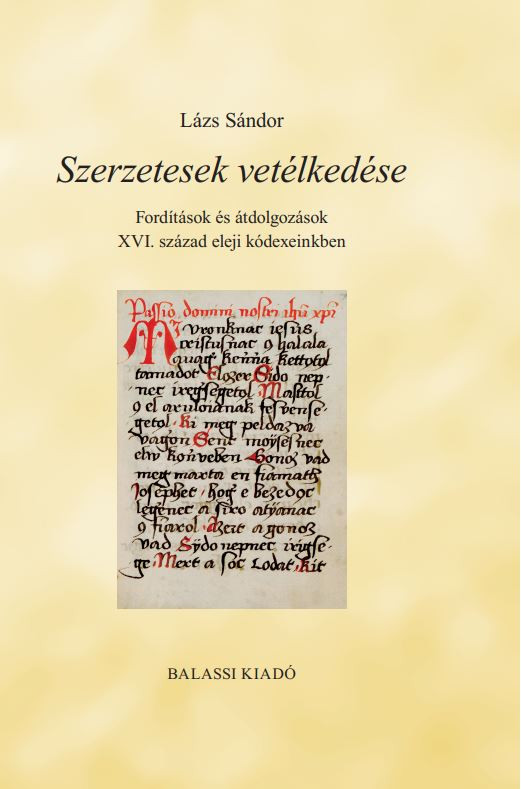 Lázs Sándor
Szerzetesek vetélkedése
Fordítások és átdolgozások
XVI. század eleji kódexeinkben
Passio domini nostri ihū xpi
Mi vronknac iesus
cristusnac halala
kettotol
tamadot Elozer Sido nep-
nec iregsegetol Masttol
getol ki meg peldazva
vagon Sent moÿses nec
elw konveben gonoz vad
meg marta en fiamath
Josephet hog e bezedoc
legenec a siro atÿanac
Azert a gonoz
vad Sÿdo nepnec irigse-
ge Mert a soc kit
BALASSI KIADÓ